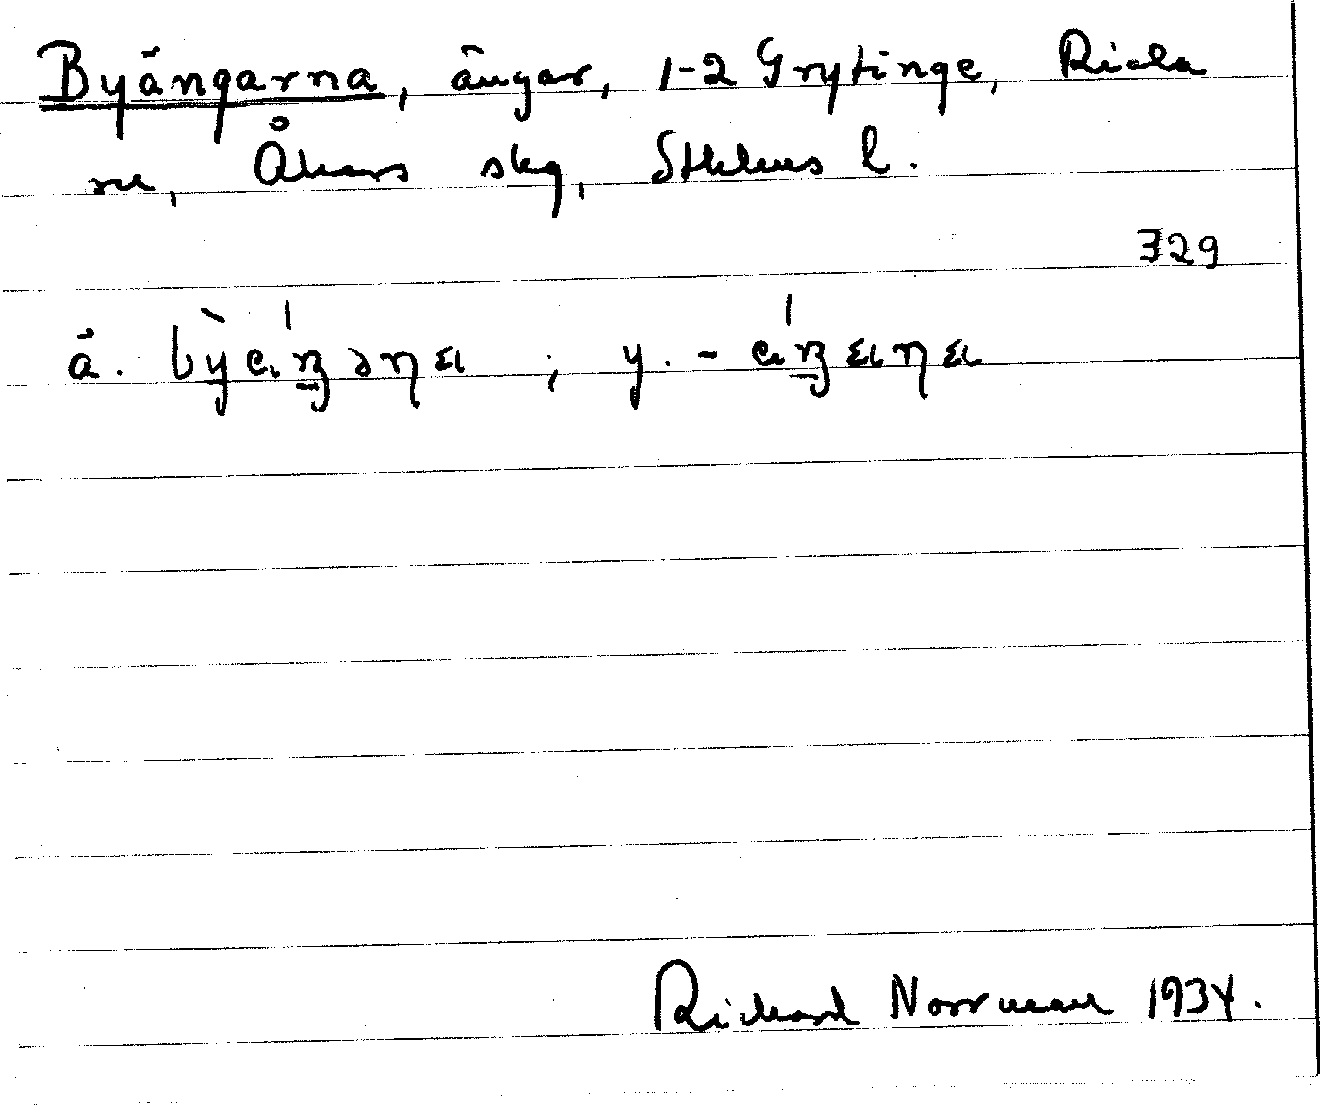 Byängarna, ängar, 1-2 Grytinge, Riala
sn, Åkers skg, Sthlms l.
329
ä. ; y. -
Richard Norrman 1934.